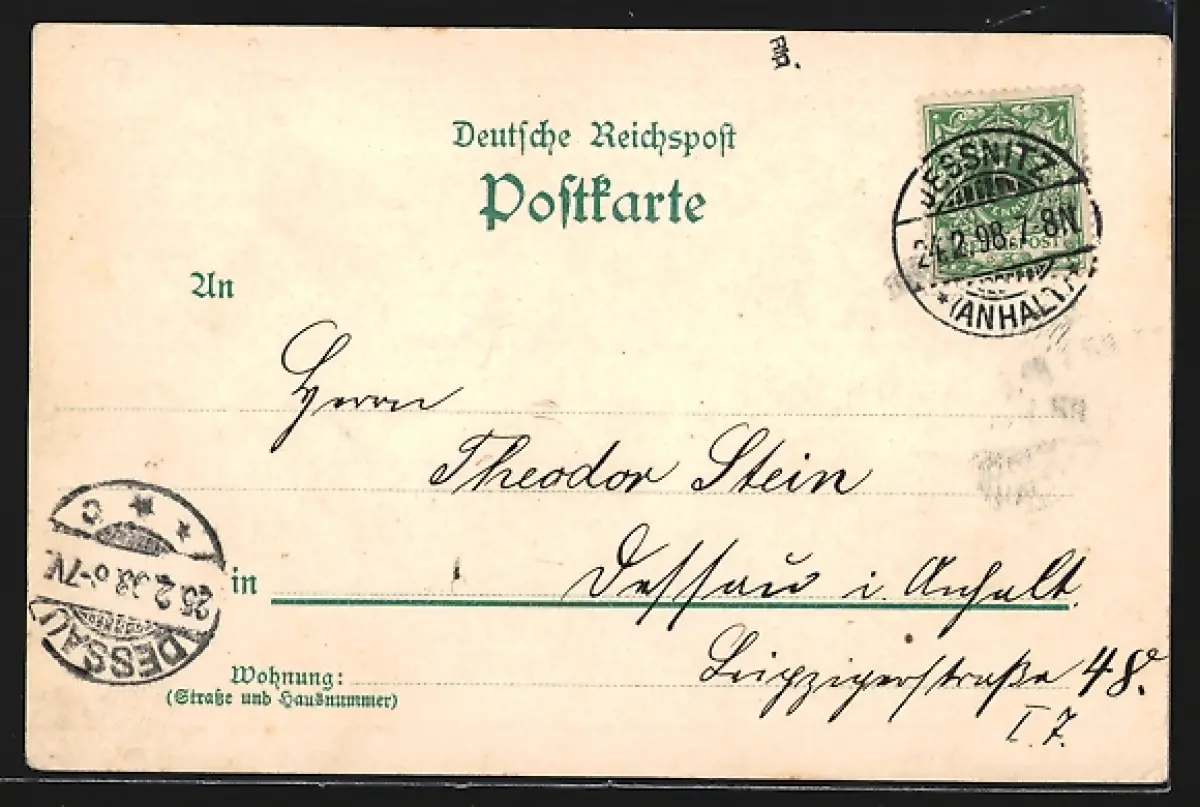 Deutsche Reichspost
Postkarte
JESSNITZ
24.2.98.7-8N
REICHSPOST
*(ANHALT)*
An
Herrn
Theodor Stein
in Dessau i. Anhalt.
Wohnung: Leipzigerstraße 48.
(Straße und Hausnummer)
I. 7.
C
25.2.98.6-7V.
DESSAU